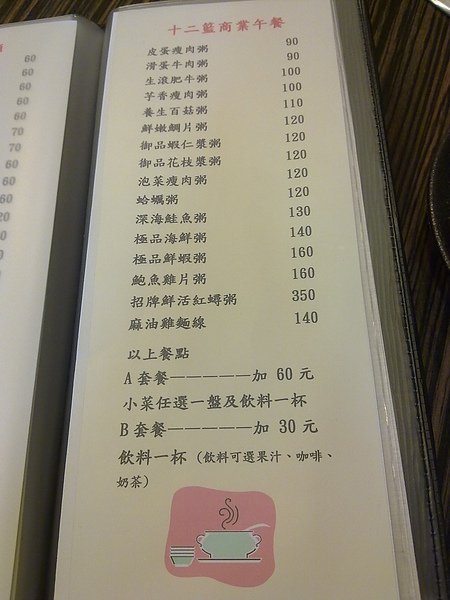 60
60
60
60
60
70
70
60
60
60
20
20
十二籃商業午餐
皮蛋瘦肉粥 90
滑蛋牛肉粥 90
生滾肥牛粥 100
芋香瘦肉粥 100
養生百菇粥 110
鮮嫩鯛片粥 120
御品蝦仁漿粥 120
御品花枝漿粥 120
泡菜瘦肉粥 120
蛤蠣粥 120
深海鮭魚粥 130
極品海鮮粥 140
極品鮮蝦粥 160
鮑魚雞片粥 160
招牌鮮活紅蟳粥 350
麻油雞麵線 140
以上餐點
A 套餐—————加 60 元
小菜任選一盤及飲料一杯
B 套餐—————加 30 元
飲料一杯 (飲料可選果汁、咖啡、
奶茶)